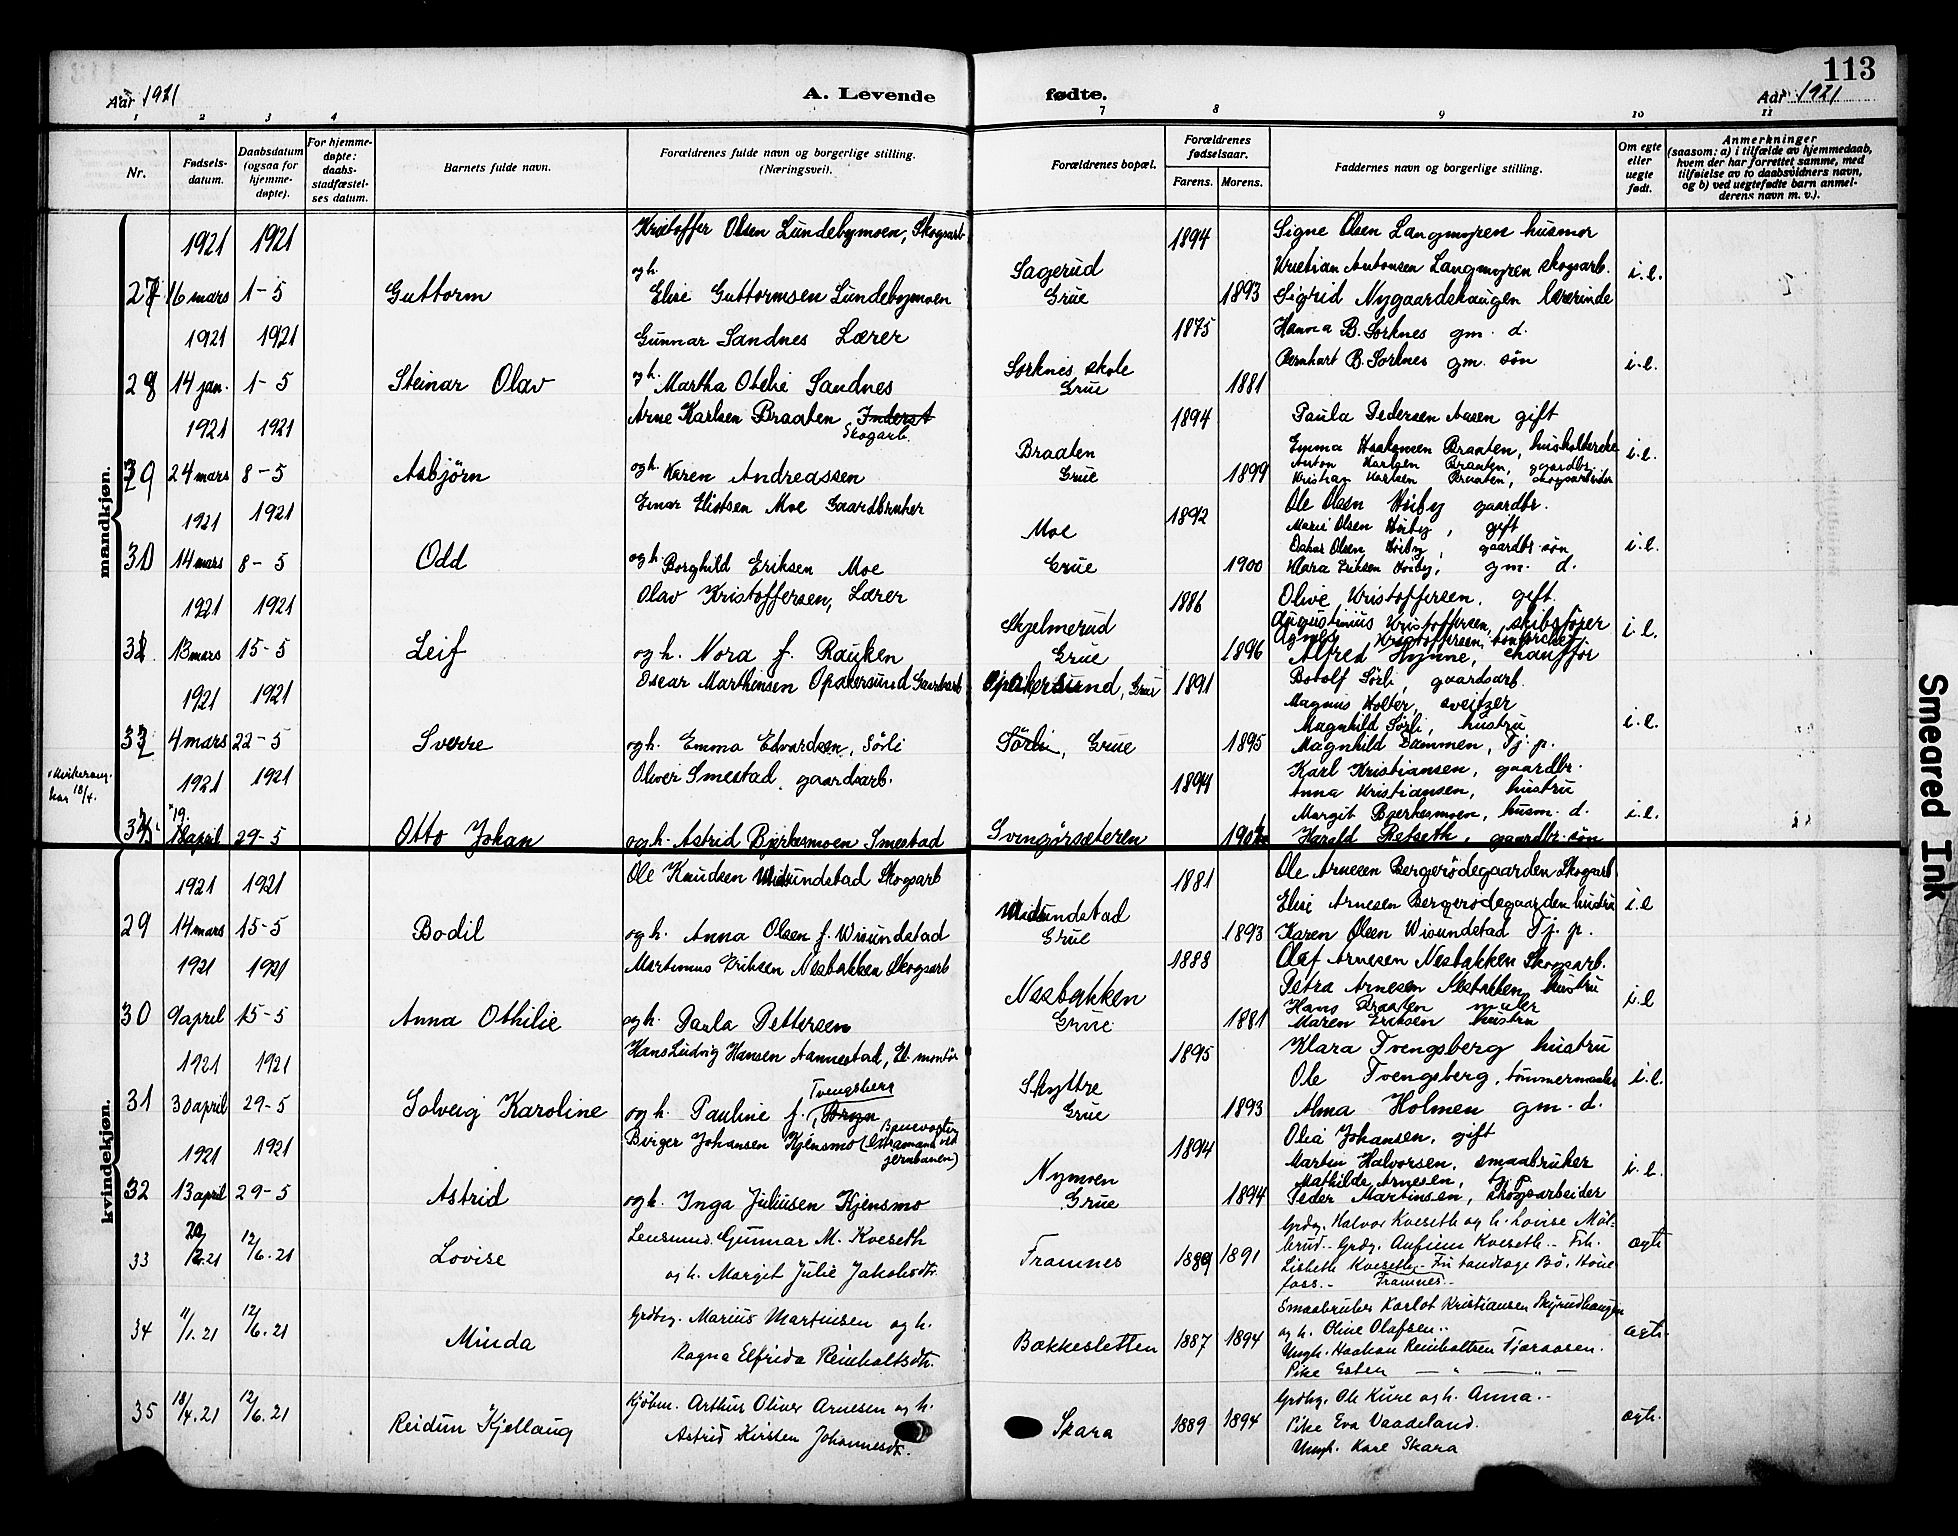 113
Aar 1921
A. Levende
fødte.
Aar 1921
1 2 3 4 7 8 9 10 11
Nr.
Fødsels-
datum.
Daabsdatum
(ogsaa for
hjemme-
døpte).
For hjemme-
døpte:
daabs-
stadfæstel-
ses datum.
Barnets fulde navn.
Forældrenes fulde navn og borgerlige stilling.
(Næringsvei).
Forældrenes bopæl.
Forældrenes
fødselsaar.
Farens.
Morens.
Faddernes navn og borgerlige stilling.
Om egte
eller
uegte
født.
Anmerkninger
(saasom: a) i tilfælde av hjemmedaab,
hvem der har forrettet samme, med
tilføielse av to daabsvidners navn,
og b) ved uegtefødte barn anmel-
derens navn m. v.).
mandkjøn.
1921 1921 Kristoffer Olsen Lundebymoen, Skogsarb 1894 Signe Olsen Langmyren husmor
og h. Sagerud Kristian Antonsen Langmyren skogsarb. i.e.
27 16 mars 1-5 Guttorm Elise Guttormsen Lundebymoen Grue 1893 Sigrid Nygaardshaugen lærerinde
1921 1921 Gunnar Sandnes Lærer 1875 Hanna B. Sorknes gm. d.
Sorknes skole Bernhart B. Sorknes gm. søn i.e.
28 14 jan. 1-5 Steinar Olav og h. Martha Otelie Sandnes Grue 1881
1921 1921 Arne Karlsen Braaten Inderst 1894 Paula Pedersen Aasen gift
Skogarb.
Braaten Emma Haakonsen Braaten, husholderske i.e.
Anton Karlsen Braaten, gaardbr.
29 24 mars 8-5 Asbjørn og h. Karen Andreassen Grue 1899 Kristian Karlsen Braaten, skogsarbeider
1921 1921 Einar Eliotsen Moe Gaardbruker 1892 Ole Olsen Höiby gaardbr.
Moe Marie Olsen Höiby, gift
Oskar Olsen Höiby, gaardbr. søn i.e.
30 14 mars 8- 5 Odd og h. Borghild Eriksen Moe Grue 1900 Klara Eriksen Höiby, gm. d.
1921 1921 Olav Kristoffersen, Lærer 1886 Olive Kristoffersen, gift.
Skjelmerud Augustinius Kristoffersen, skibsfører i.e.
Agnes Kristoffersen,
31 13 mars 15-5 Leif og h. Nora f. Rauken Grue 1896 Alfred Hynne, chauffør
1921 1921 Oscar Marthinsen Opakersund Gaardarb Opakersund, Grue 1891 Botolf Sørli, gaardsarb.
Magnus Holter, sveitzer
Magnhild Sørli, hustru i.e.
32 4 mars 22-5 Sverre og h. Emma Edvardsen, Sörli Sörli, Grue 1895 Magnhild Dammen, Tj. p.
1921 1921 Oliver Smestad, gaardsarb. 1894 Karl Kristiansen, gaardbr.
18/4. Anna Kristiansen, hustru
19 Margit Bjerkesmoen, husm. d. i.e.
april 29-5 Otto Johan og h. Astrid Bjerkesmoen Smestad Svengörsæteren Harald Retseth, gaardbr. søn
kvindekjøn.
1921 1921 Ole Knudsen Wisundstad Skogsarb 1881 Ole Arnesen Bergerödegaarden Skogsarb
Wisundstad Elise Arnesen Bergerödegaarden hustru i.e
29 14 mars 15-5 Bodil og h. Anna Olsen f. Wisundstad Grue 1893 Karen Olsen Wisundstad Tj. p.
1921 1921 Martinus Eriksen Nesbakken Skogsarb 1888 Olaf Arnesen Nesbakken Skogsarb.
Nesbakken Petra Arnesen Nesbakken hustru i.e
Hans Braaten maler
30 9 april 15-5 Anna Othilie og h. Paula Pettersen Grue 1881 Maren Eriksen hustru
1921 1921 Hans Ludvig Hansen Aannestad, El. montör 1895 Klara Tvengsberg hustru
Tvengsberg Skyttre Ole Tvengsberg, tömmermaaler i.e.
31 30 april 29-5 Solveig Karoline og h. Pauline f. Bryn Grue 1893 Alma Holmen gm. d.
1921 1921 Birger Johansen Kjensmo (Ekstramand ved 1894 Olia Johansen, gift
jernbanen)
Nymoen Martin Halvorsen, smaabruker i.e.
Mathilde Arnesen, tj. p.
32 13 april 29-5 Astrid og h. Inga Juliusen Kjensmo Grue 1894 Peder Martinsen, skogsarbeider
Lensmd. Gunnar M. Kveseth Grdbr. Halvor Kveseth og h. Lovise Möl-
33 12/6.21 Lovise Framnes 1891 brud.- Grdbr. Anfinn Kveseth.- Frk. ægte
og h. Margit Julie Jakobsdtr. Lisbeth Kveseth - Fru Bö, Höne-
foss.- Framnes.-
34 11/1.21 12/6.21 Minda Grdbr. Marius Martinsen og h. Smaabruker Karlot Kristiansen Skyrudhaugen
Bakkesletten 1887 1894 og h. Oline Olafsen.- ægte.
Ragna Elfrida Reinholtsdtr. Ungk. Haakon Reinholtsen Tjæraasen.
Pike Ester — " — " —
35 18/4.21 12/6.21 Reidun Kjellaug Kjöbm. Arthur Oliver Arnesen og h. Grdbr. Ole Kure og h. Anna.-
Skara 1889 1894 Pike Eva Vaadeland. ægte.
Astrid Kirsten Johannesdtr. Ungk. Kåre Skara
Smeared Ink